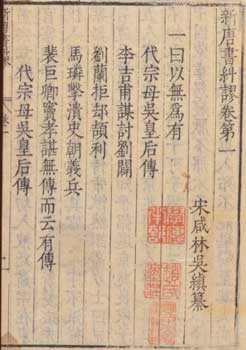 新唐書糾謬卷第一
宋咸林吳縝纂
一曰以無為有
代宗母吳皇后傳
李吉甫謀討劉闢
劉蘭拒却頡利
馬璘擊潰史朝義兵
裴巨卿竇孝諶無傳而云有傳
代宗母吳皇后傳